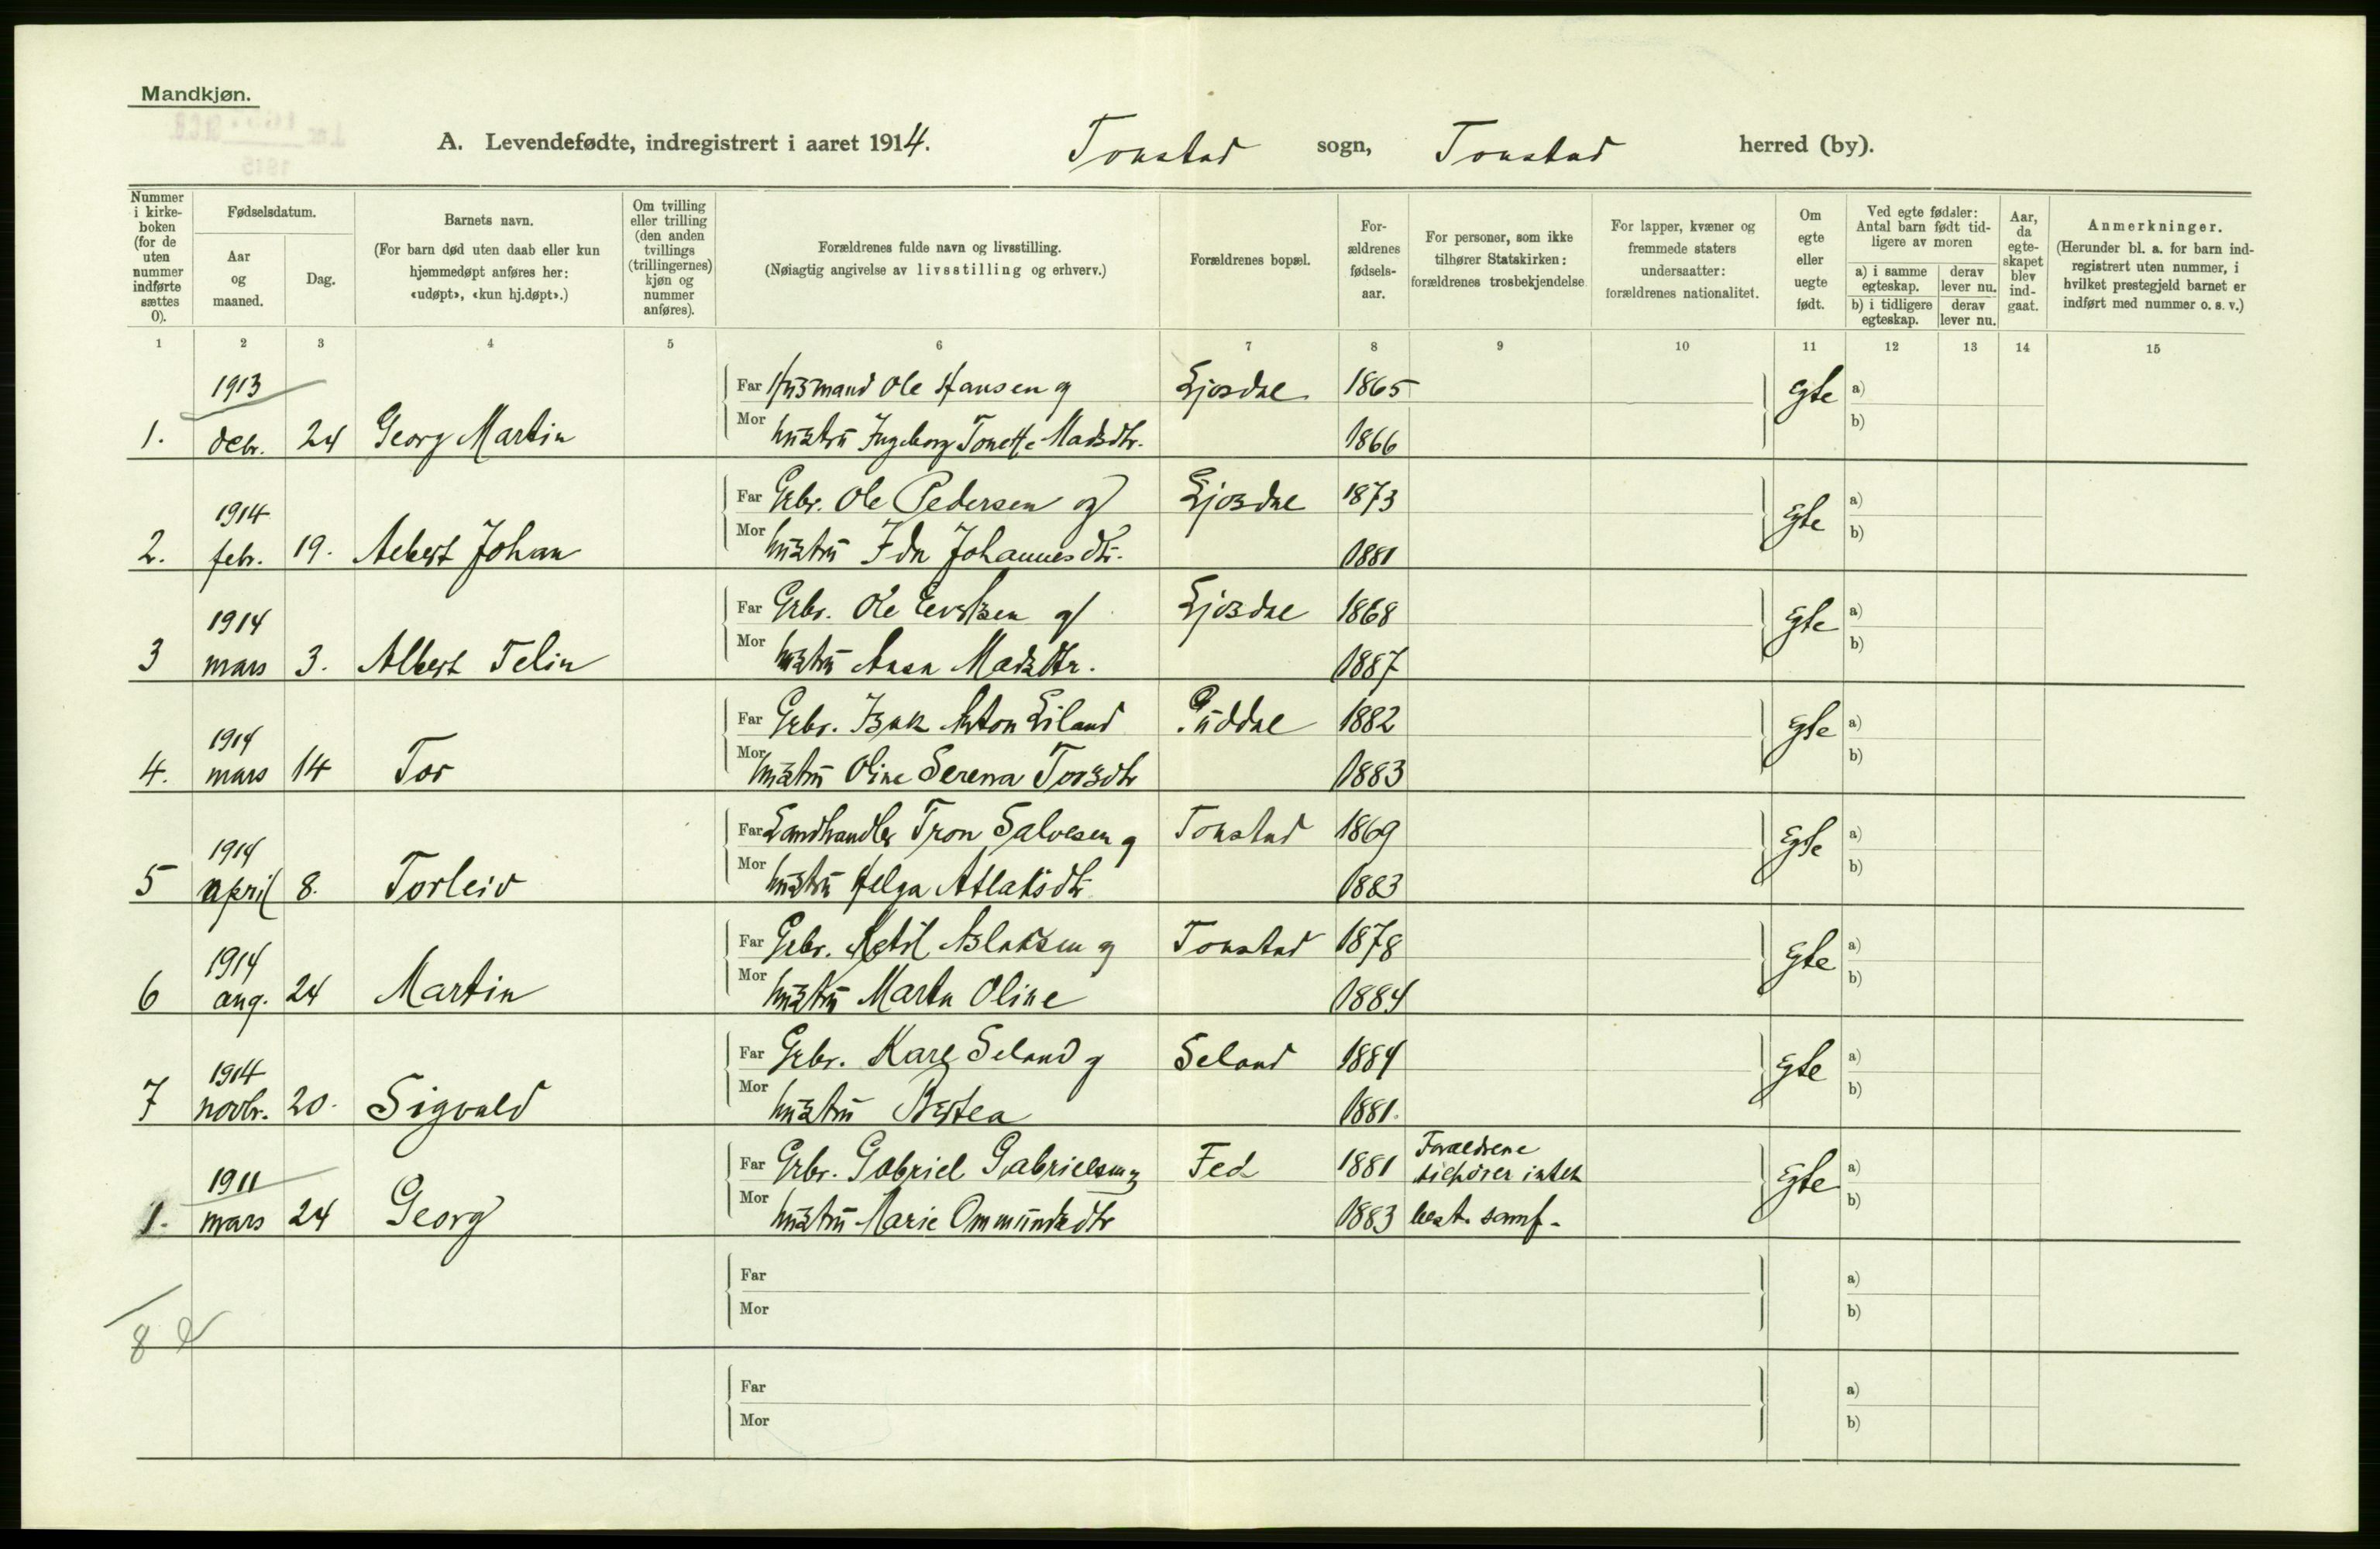 Mandkjøn.
A. Levendefødte, indregistrert i aaret 1914. Tonstad sogn, Tonstad herred (by).
Nummer i kirkeboken (for de uten nummer indførte sættes 0).
Fødselsdatum.
Aar og maaned.
Dag.
Barnets navn.
(For barn død uten daab eller kun hjemmedøpt anføres her: «udøpt», «kun hj.døpt».)
Om tvilling eller trilling (den anden tvillings (trillingernes) kjøn og nummer anføres).
Forældrenes fulde navn og livsstilling.
(Nøiagtig angivelse av livsstilling og erhverv.)
Forældrenes bopæl.
For-ældrenes fødsels-aar.
For personer, som ikke tilhører Statskirken: forældrenes trosbekjendelse.
For lapper, kvæner og fremmede staters undersaatter: forældrenes nationalitet.
Om egte eller uegte født.
Ved egte fødsler: Antal barn født tidligere av moren
a) i samme egteskap. derav lever nu.
b) i tidligere egteskap. derav lever nu.
Aar, da egte-skapet blev ind-gaat.
Anmerkninger.
(Herunder bl. a. for barn indregistrert uten nummer, i hvilket prestegjeld barnet er indført med nummer o. s. v.)
1 2 3 4 5 6 7 8 9 10 11 12 13 14 15
1913 Far Husmand Ole Hansen og Ljosdal 1865 Egte a)
1. debr. 24 Georg Martin Mor hustru Ingeborg Tonette Madsdtr. 1866 b)
1914 Far Grbr. Ole Pedersen og Ljosdal 1873 Egte a)
2. febr. 19. Albert Johan Mor hustru Ida Johannesdtr. 1881 b)
1914 Far Grbr. Ole Evertsen og Ljosdal 1868 Egte a)
3 mars 3. Albert Telin Mor hustru Anna Madsdtr. 1887 b)
1914 Far Grbr. Isak Anton Eiland 1882 Egte a)
4. mars 14 Tor Mor hustru Oline Serena Torsdtr 1883 b)
1914 Far Landhandler Tron Salvesen og Tonstad 1869 Egte a)
5 april 8. Torleiv Mor hustru Helga Atlaksdtr 1883 b)
1914 Far Grbr. Ketil Aslaksen og Tonstad 1878 Egte a)
6 aug. 24 Martin Mor hustru Marta Oline 1884 b)
1914 Far Grbr. Karl Seland og Seland 1884 Egte a)
7 novbr. 20. Sigvald Mor hustru Bertea 1881. b)
1911 Far Grbr. Gabriel Gabrielsen og Fed 1881 Forældrene tilhører intet Egte a)
1. mars 24 Georg Mor hustru Marie Ommundsdtr 1883 best. samf. b)
Far a)
Mor b)
8
Far a)
Mor b)